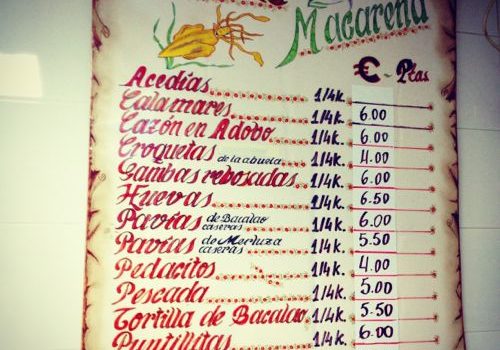 Macarena
€ - Ptas
Acedías 1/4k. 6.00
Calamares 1/4k. 6.00
Cazón en Adobo 1/4k. 4.00
Croquetas de la abuela 1/4k. 6.00
Gambas rebosadas 1/4k. 6.50
Huevas 1/4k. 6.00
Pavías de Bacalao caseras 1/4k. 5.50
Pavías de Merluza caseras 1/4k. 4.00
Pedacitos 1/4k. 5.00
Pescada 1/4k. 5.50
Tortilla de Bacalao 1/4k. 6.00
Puntillitas 1/4k.